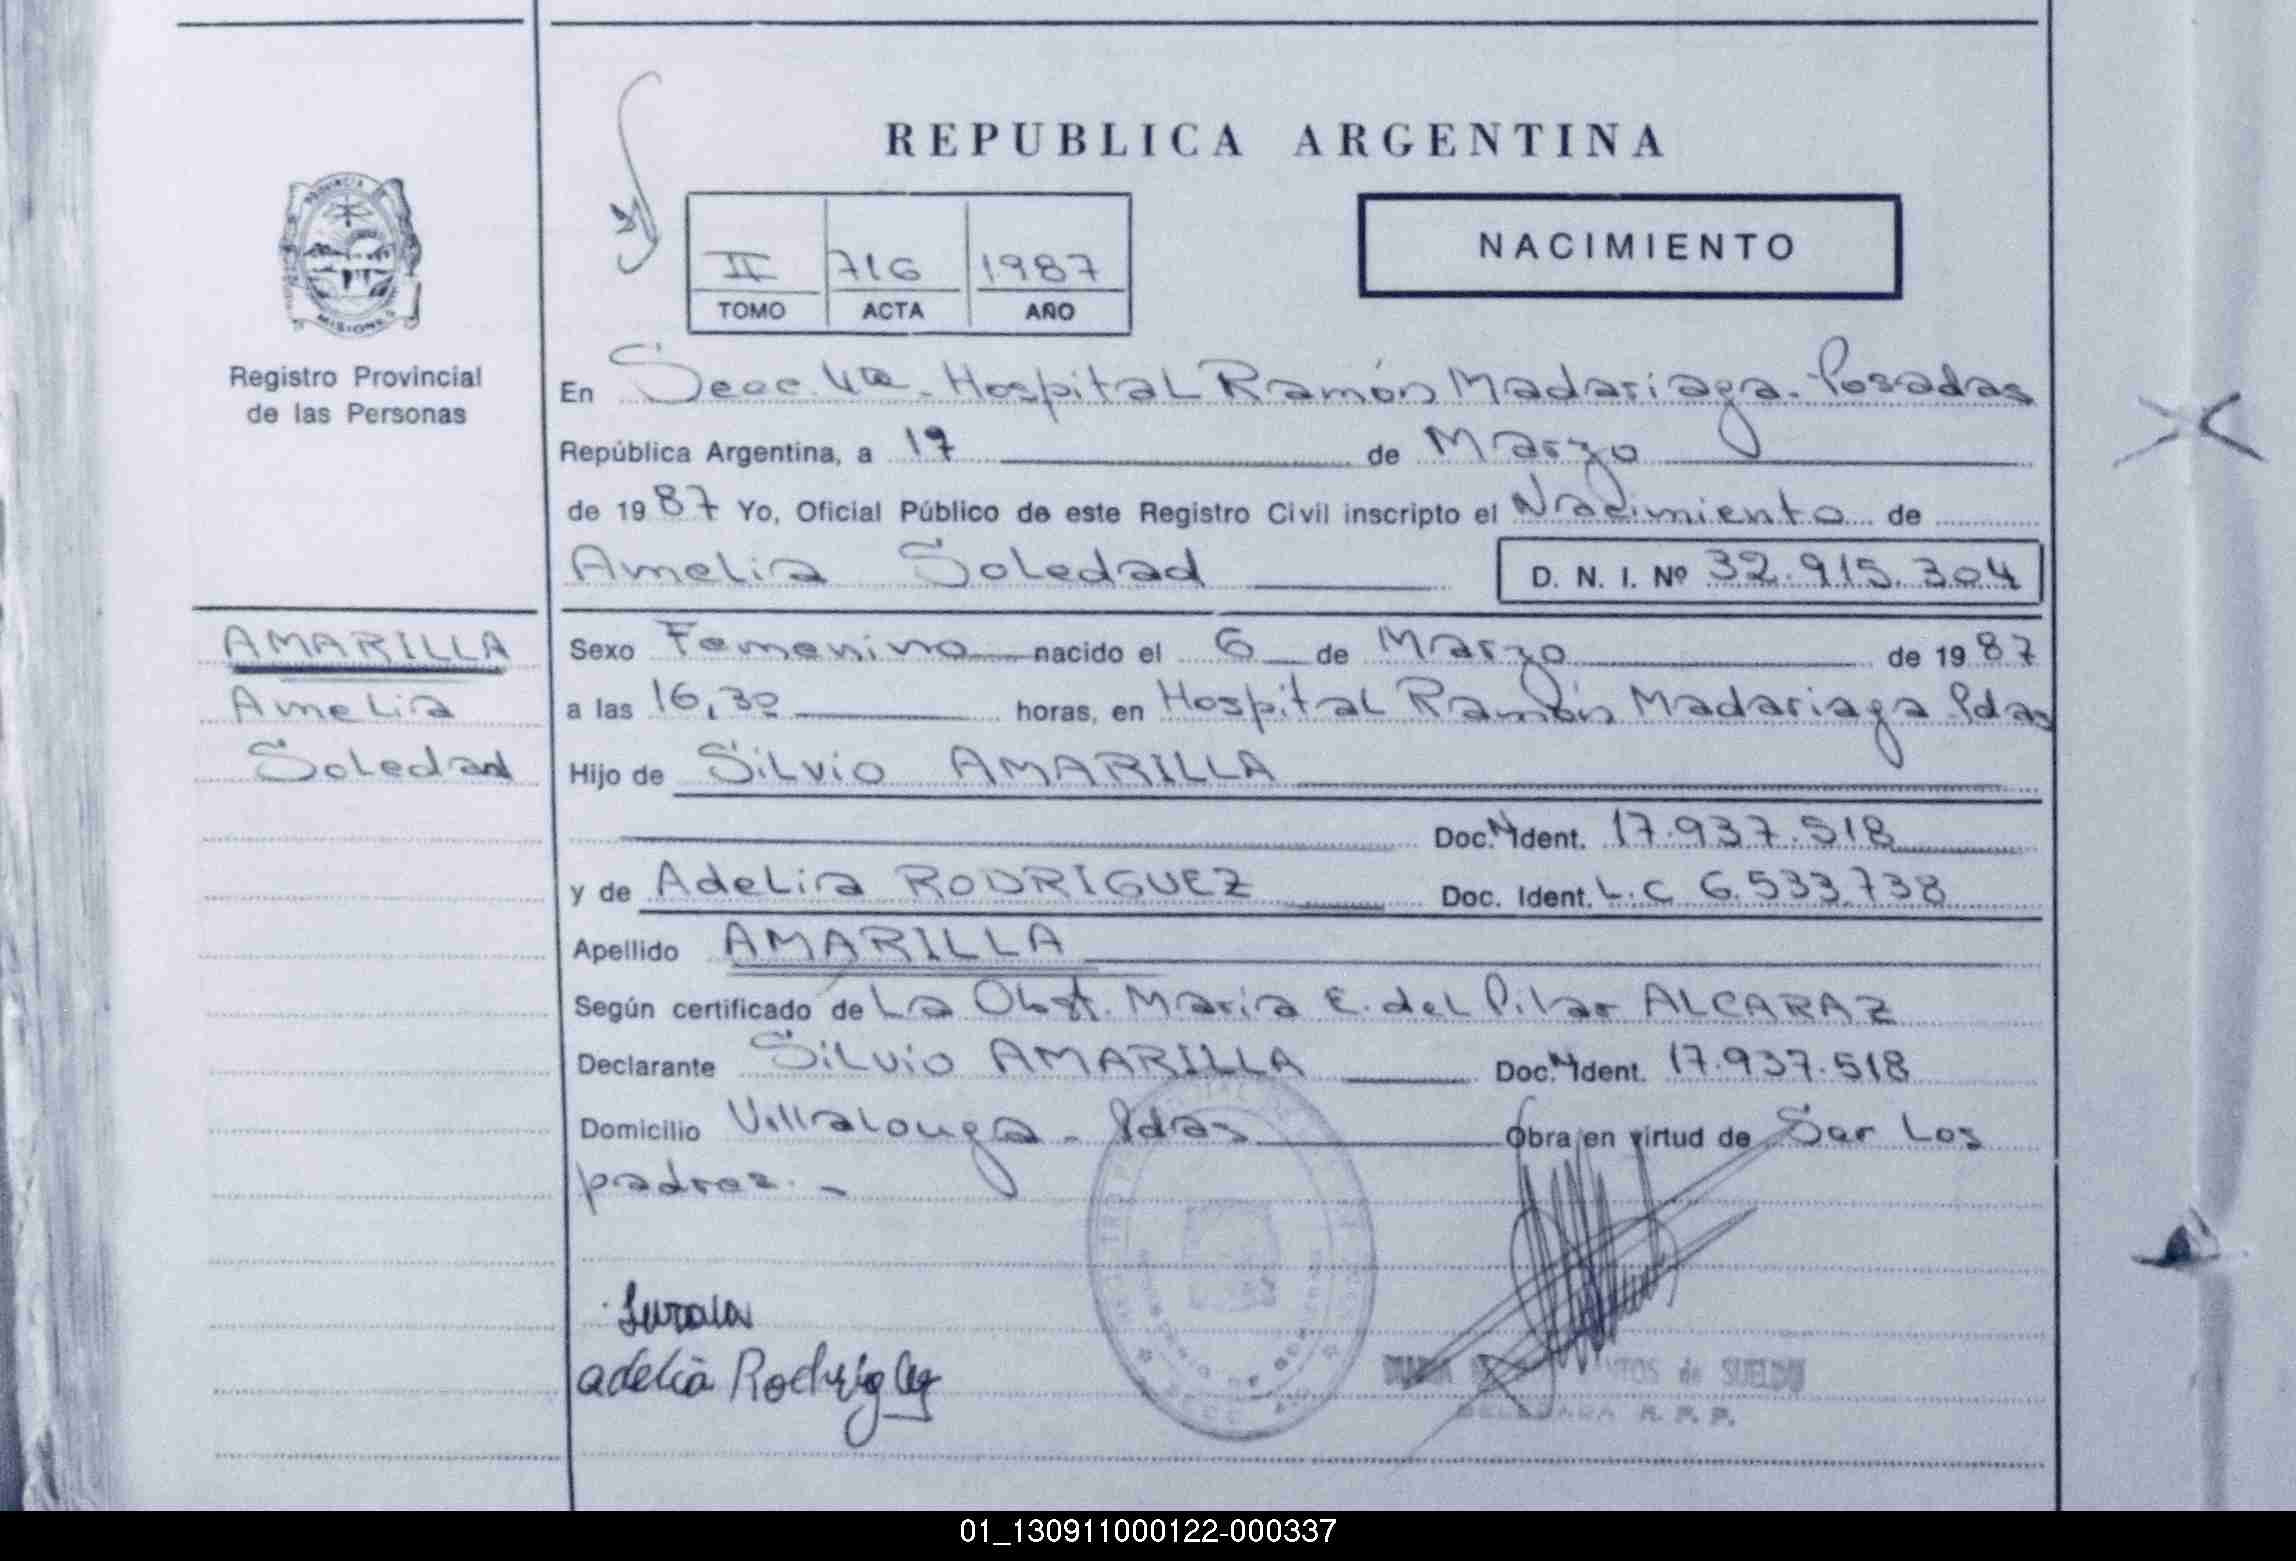 REPUBLICA ARGENTINA
PROVINCIA DE
MISIONES
Registro Provincial
de las Personas
II 716 1987
TOMO ACTA AÑO
NACIMIENTO
En Secc. 4ta. Hospital Ramón Madariaga. Posadas
República Argentina, a 17 de Marzo
de 1987 Yo, Oficial Público de este Registro Civil inscripto el Nacimiento de
Amelia Soledad D. N. I. Nº 32.915.304
AMARILLA
Amelia
Soledad
Sexo Femenino nacido el 6 de Marzo de 1987
a las 16,30 horas, en Hospital Ramón Madariaga Pdas
Hijo de Silvio AMARILLA
Doc. N Ident. 17.937.518
y de Adelia RODRIGUEZ Doc. Ident. L.C 6.533.738
Apellido AMARILLA
Según certificado de La Obst. Maria E. del Pilar ALCARAZ
Declarante Silvio AMARILLA Doc. N Ident. 17.937.518
Domicilio Villalonga - Pdas Obra en virtud de Ser Los
padres. -
adelia Rodriguez
de SUELDO
DELEGADA R. P. P.
01_130911000122-000337